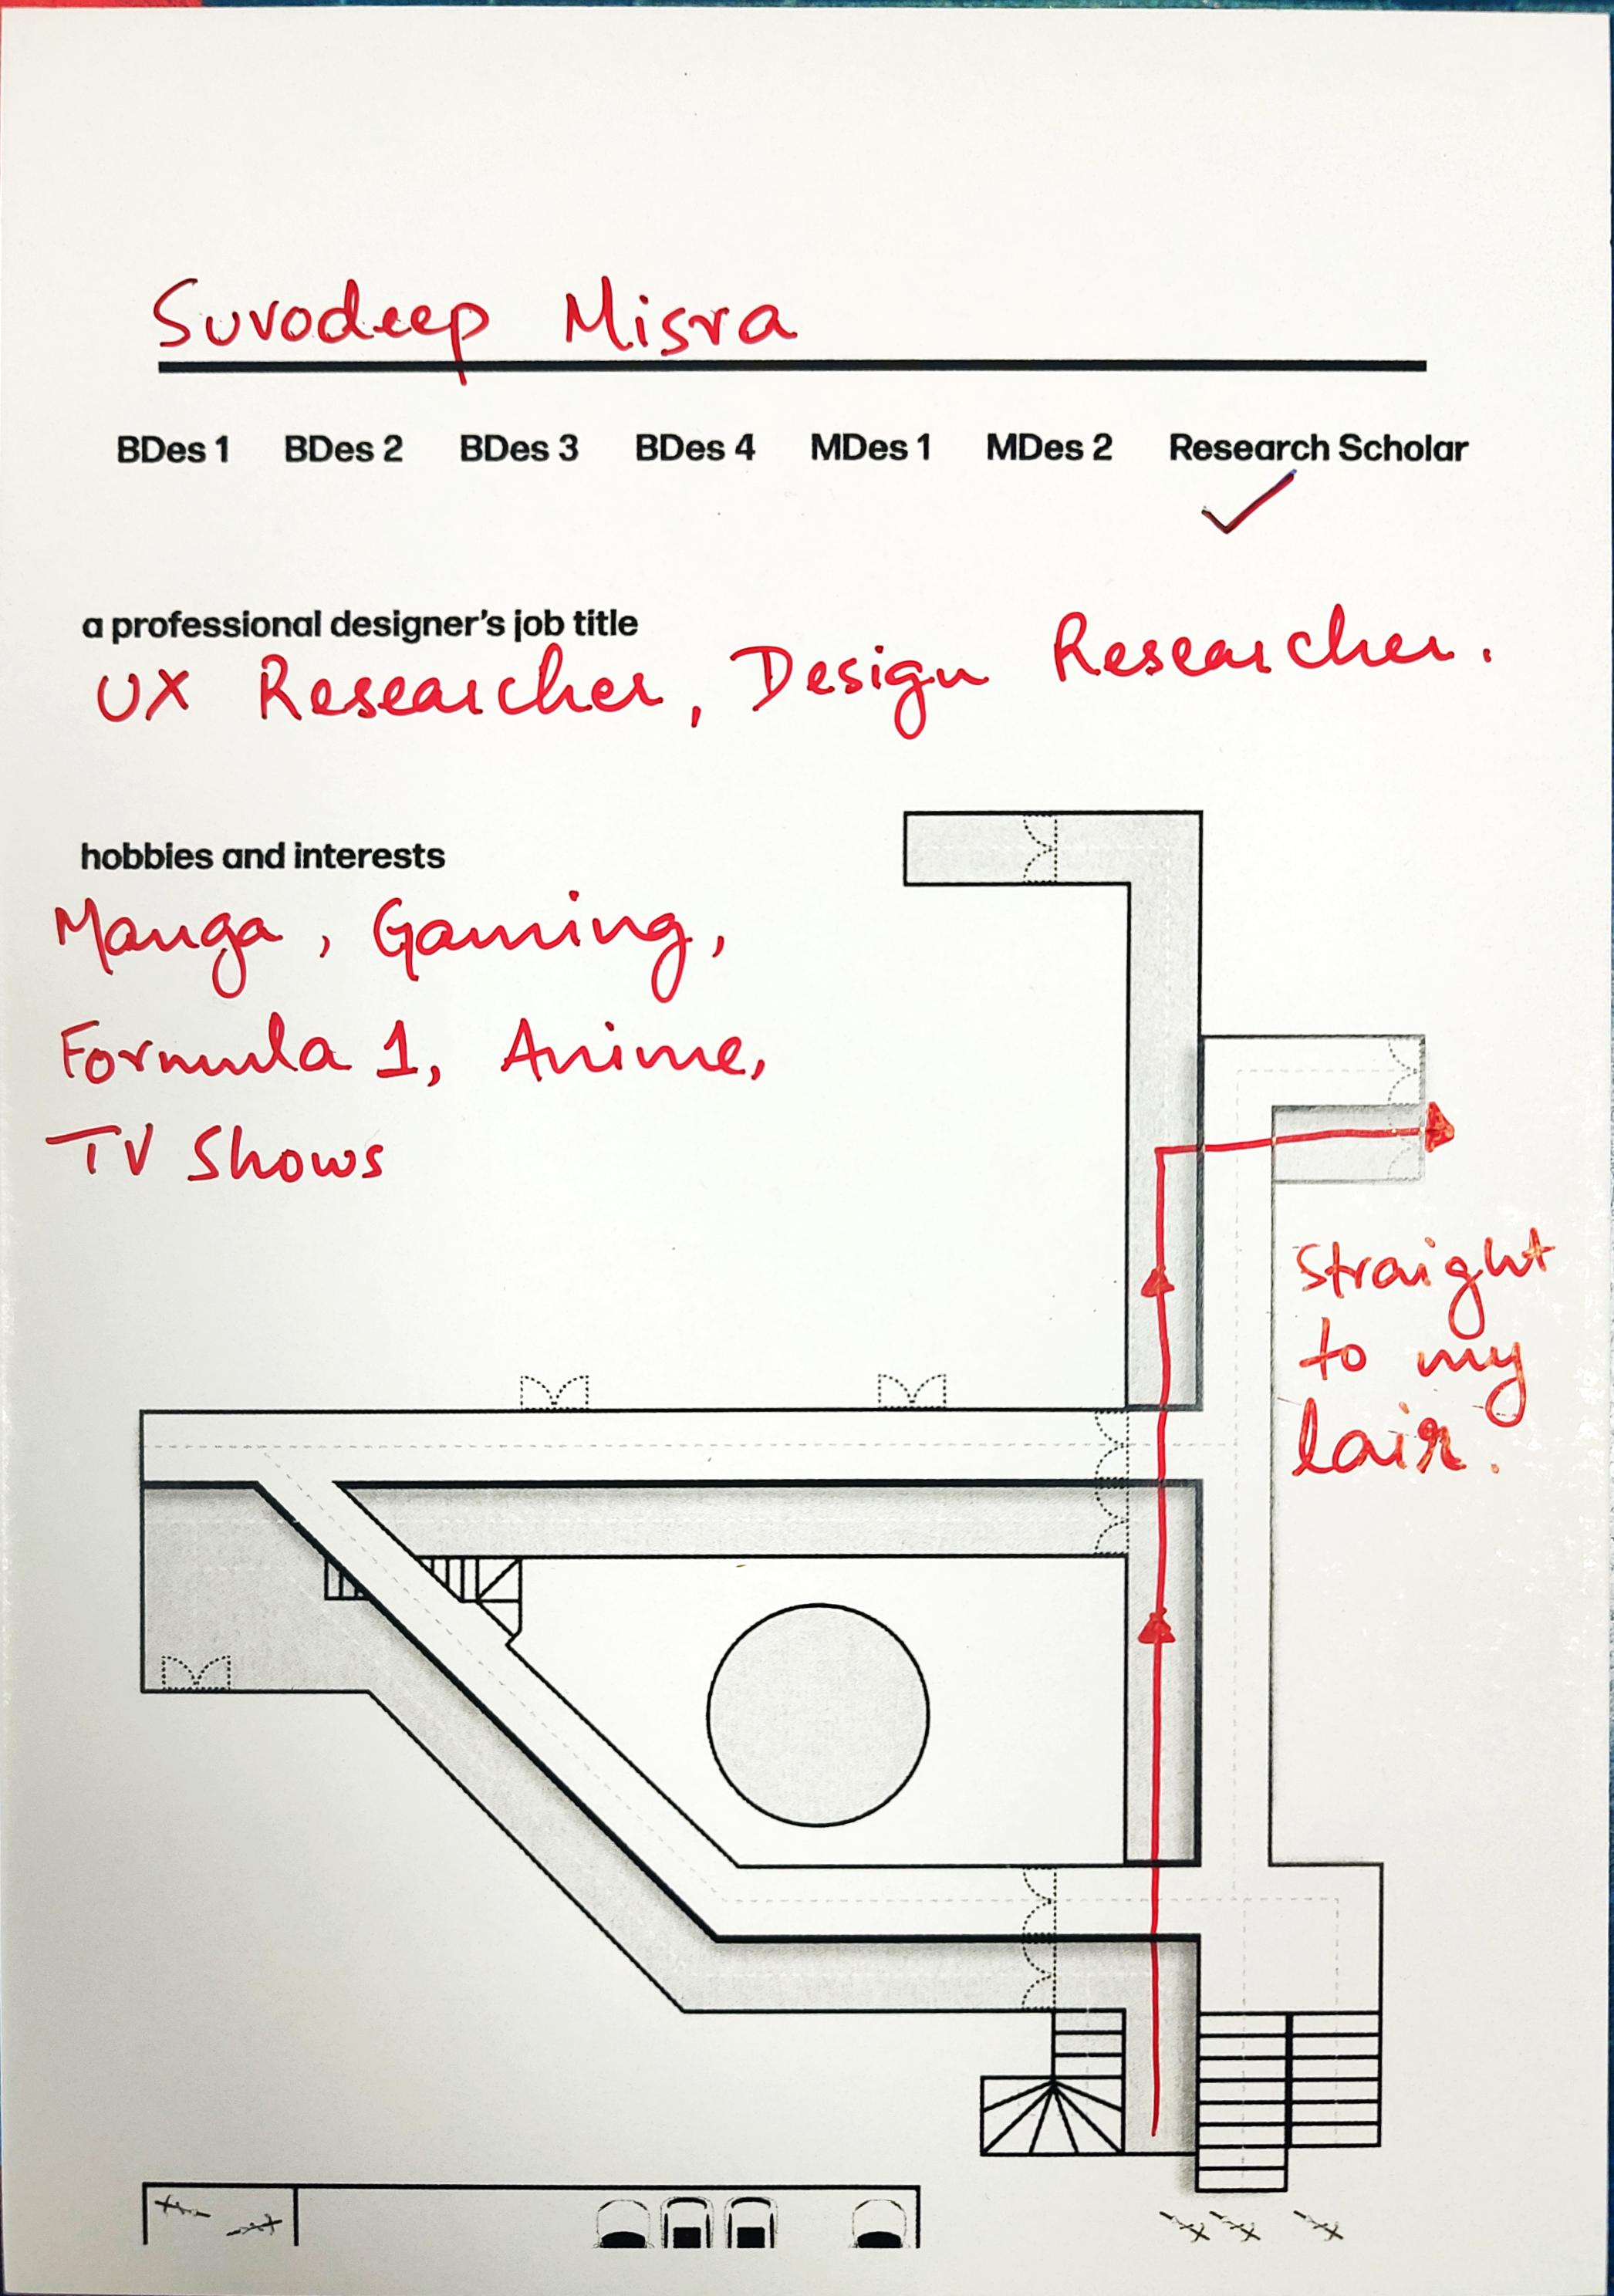 Suvodeep Misra
BDes 1 BDes 2 BDes 3 BDes 4 MDes 1 MDes 2 Research Scholar
a professional designer's job title
UX Researcher, Design Researcher.
hobbies and interests
Manga, Gaming,
Formula 1, Anime,
TV Shows
Straight
to my
lair.